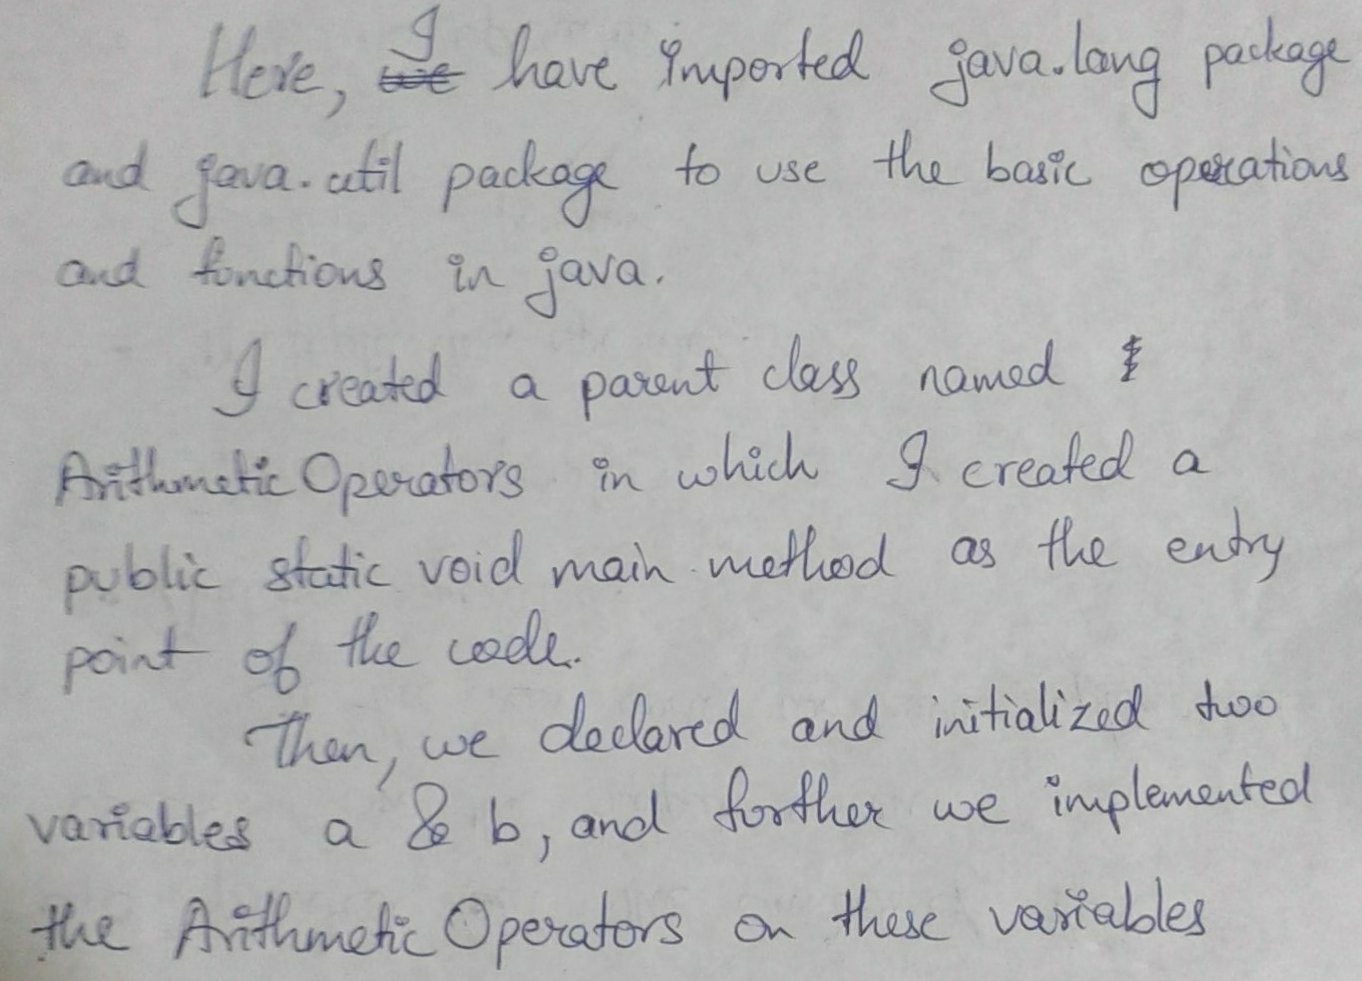 Here, I have imported java.lang package
and java.util package to use the basic operations
and functions in java.
I created a parent class named
Arithmetic Operators in which I created a
public static void main method as the entry
point of the code.
Then, we declared and initialized two
variables a & b, and further we implemented
the Arithmetic Operators on these variables